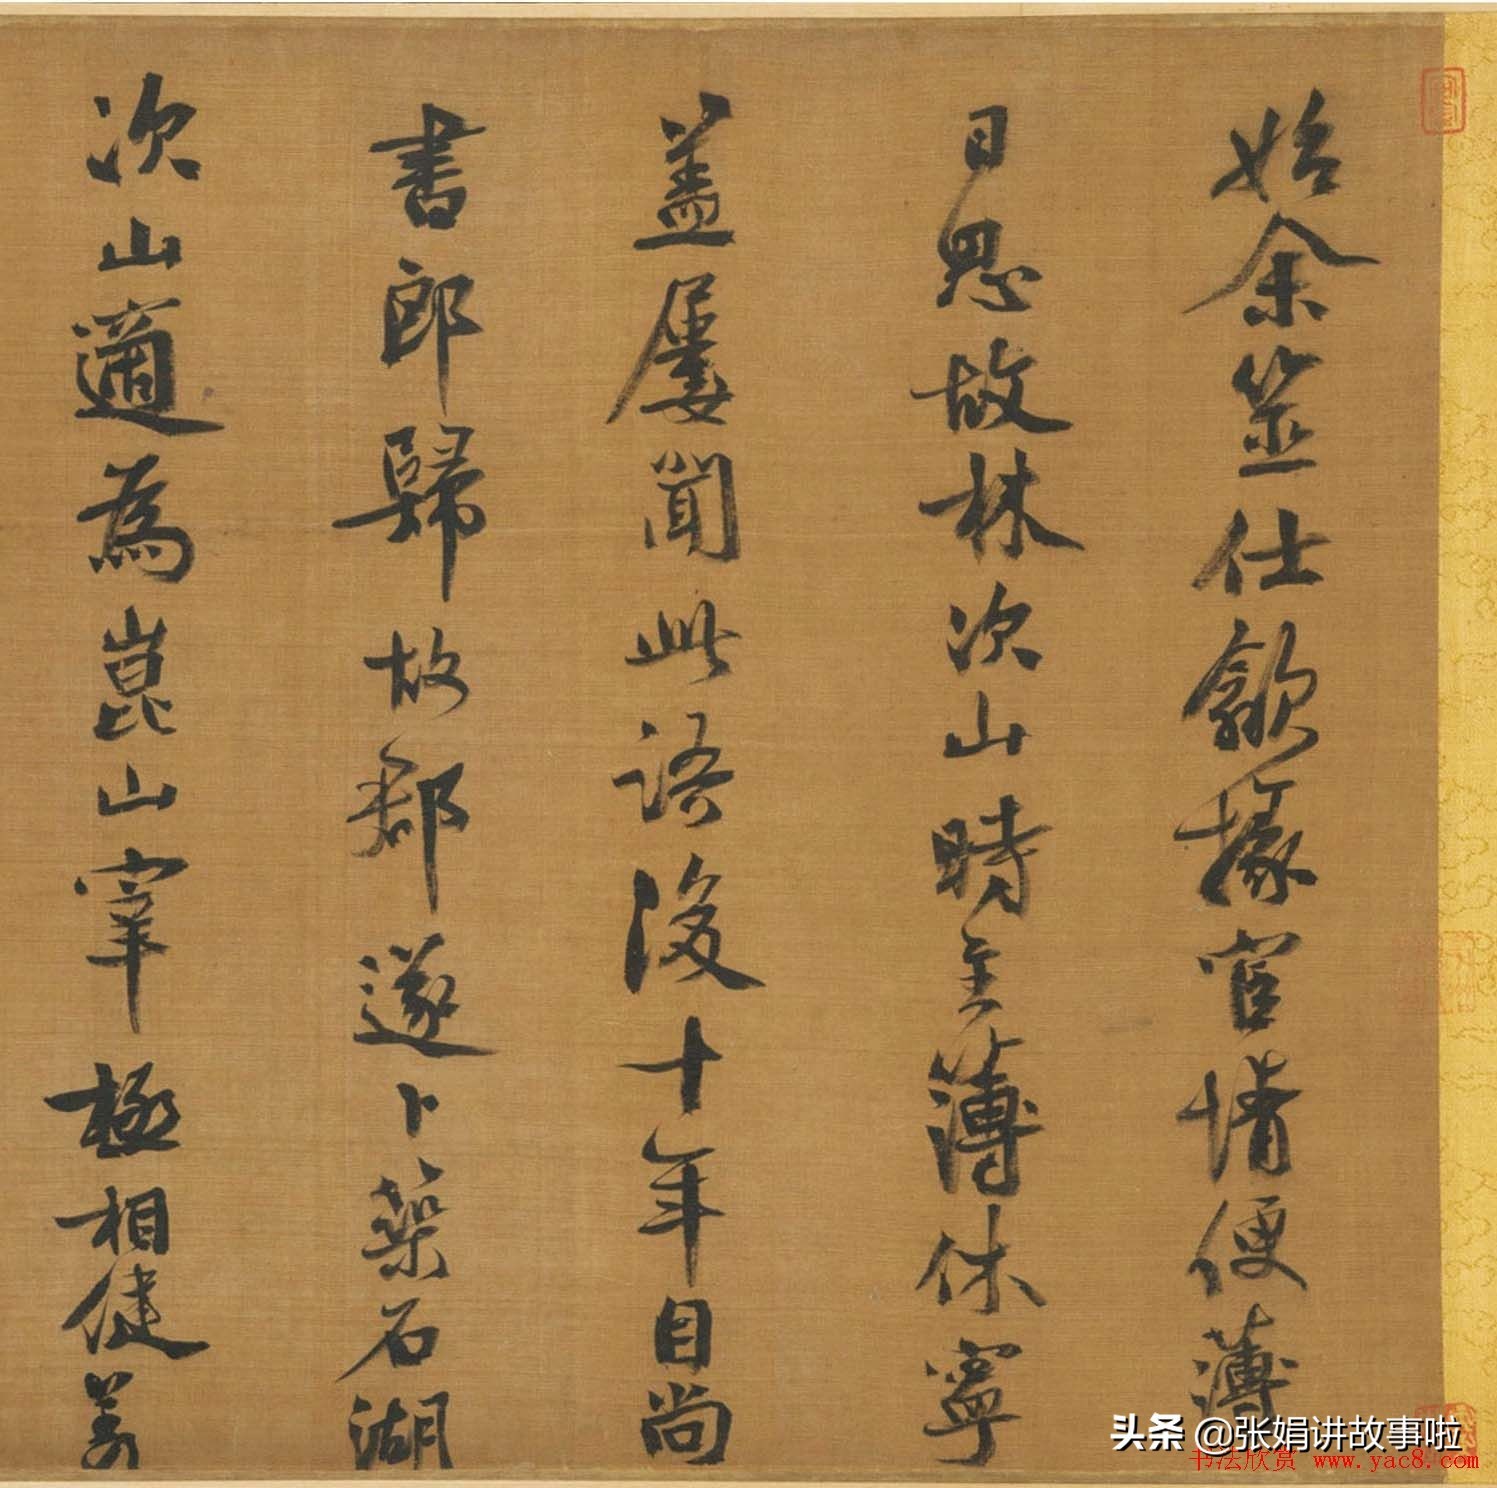 始余筮仕歙掾宦情便薄
日思故林次山時主簿休寧
蓋屢聞此語後十年自尚
書郎歸故郡遂卜築石湖
次山適為崑山宰極相健羡
头条 @张娟讲故事啦
书法欣赏 www.yac8.com